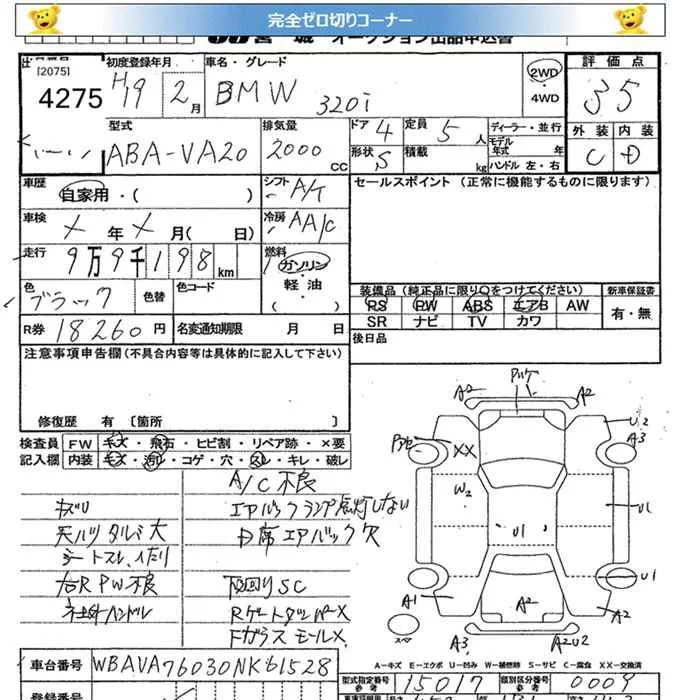 完全ゼロ切りコーナー
宮 城 オークション出品申込書
[2075]
4275
初度登録年月
H19 2月
車名・グレード
BMW 320i
2WD
・
4WD
評価点
3 5
外装 内装
C D
型式
ABA-VA20
排気量
2000 CC
ドア 4
定員 5 人
形状 S
積載 kg
ディーラー・並行
モデル年式 年
ハンドル 左・右
車歴
自家用・( )
シフト A/T
セールスポイント (正常に機能するものに限ります)
車検
X 年 X 月( 日)
冷房 AA/C
走行
9万9千198km
燃料
ガソリン
・
軽油
( )
色
ブラック
色替
色コード
装備品 (純正品に限り○をつけてください)
新車保証書
PS PW ABS エアB AW
SR ナビ TV カワ
有・無
R券 18260円
名変通知期限 月 日
後日品
注意事項申告欄(不具合内容等は具体的に記入して下さい)
修復歴 有 〔箇所 〕
検査員
記入欄
FW キズ・飛石・ヒビ割・リペア跡・×要
内装 キズ・汚れ・コゲ・穴・スレ・キレ・破レ
A/C不良
エアバックランプ点灯しない
天バリタルミ大
シートスレ、ヘたり
右R PW不良
下回りSC
社外ハンドル
RゲートダンパーX
FガラスモールX
A2
A2
U2
A3
XX
W2
U1
U1
U1
A1
A2
A2
A3
A2U2
A－キズ E－エクボ U－凹み W－補修跡 S－サビ C－腐食 XX－交換済
車台番号
WBAVA76030NK61528
型式指定番号
参考
15017
類別区分番号
参考
0009
登録番号